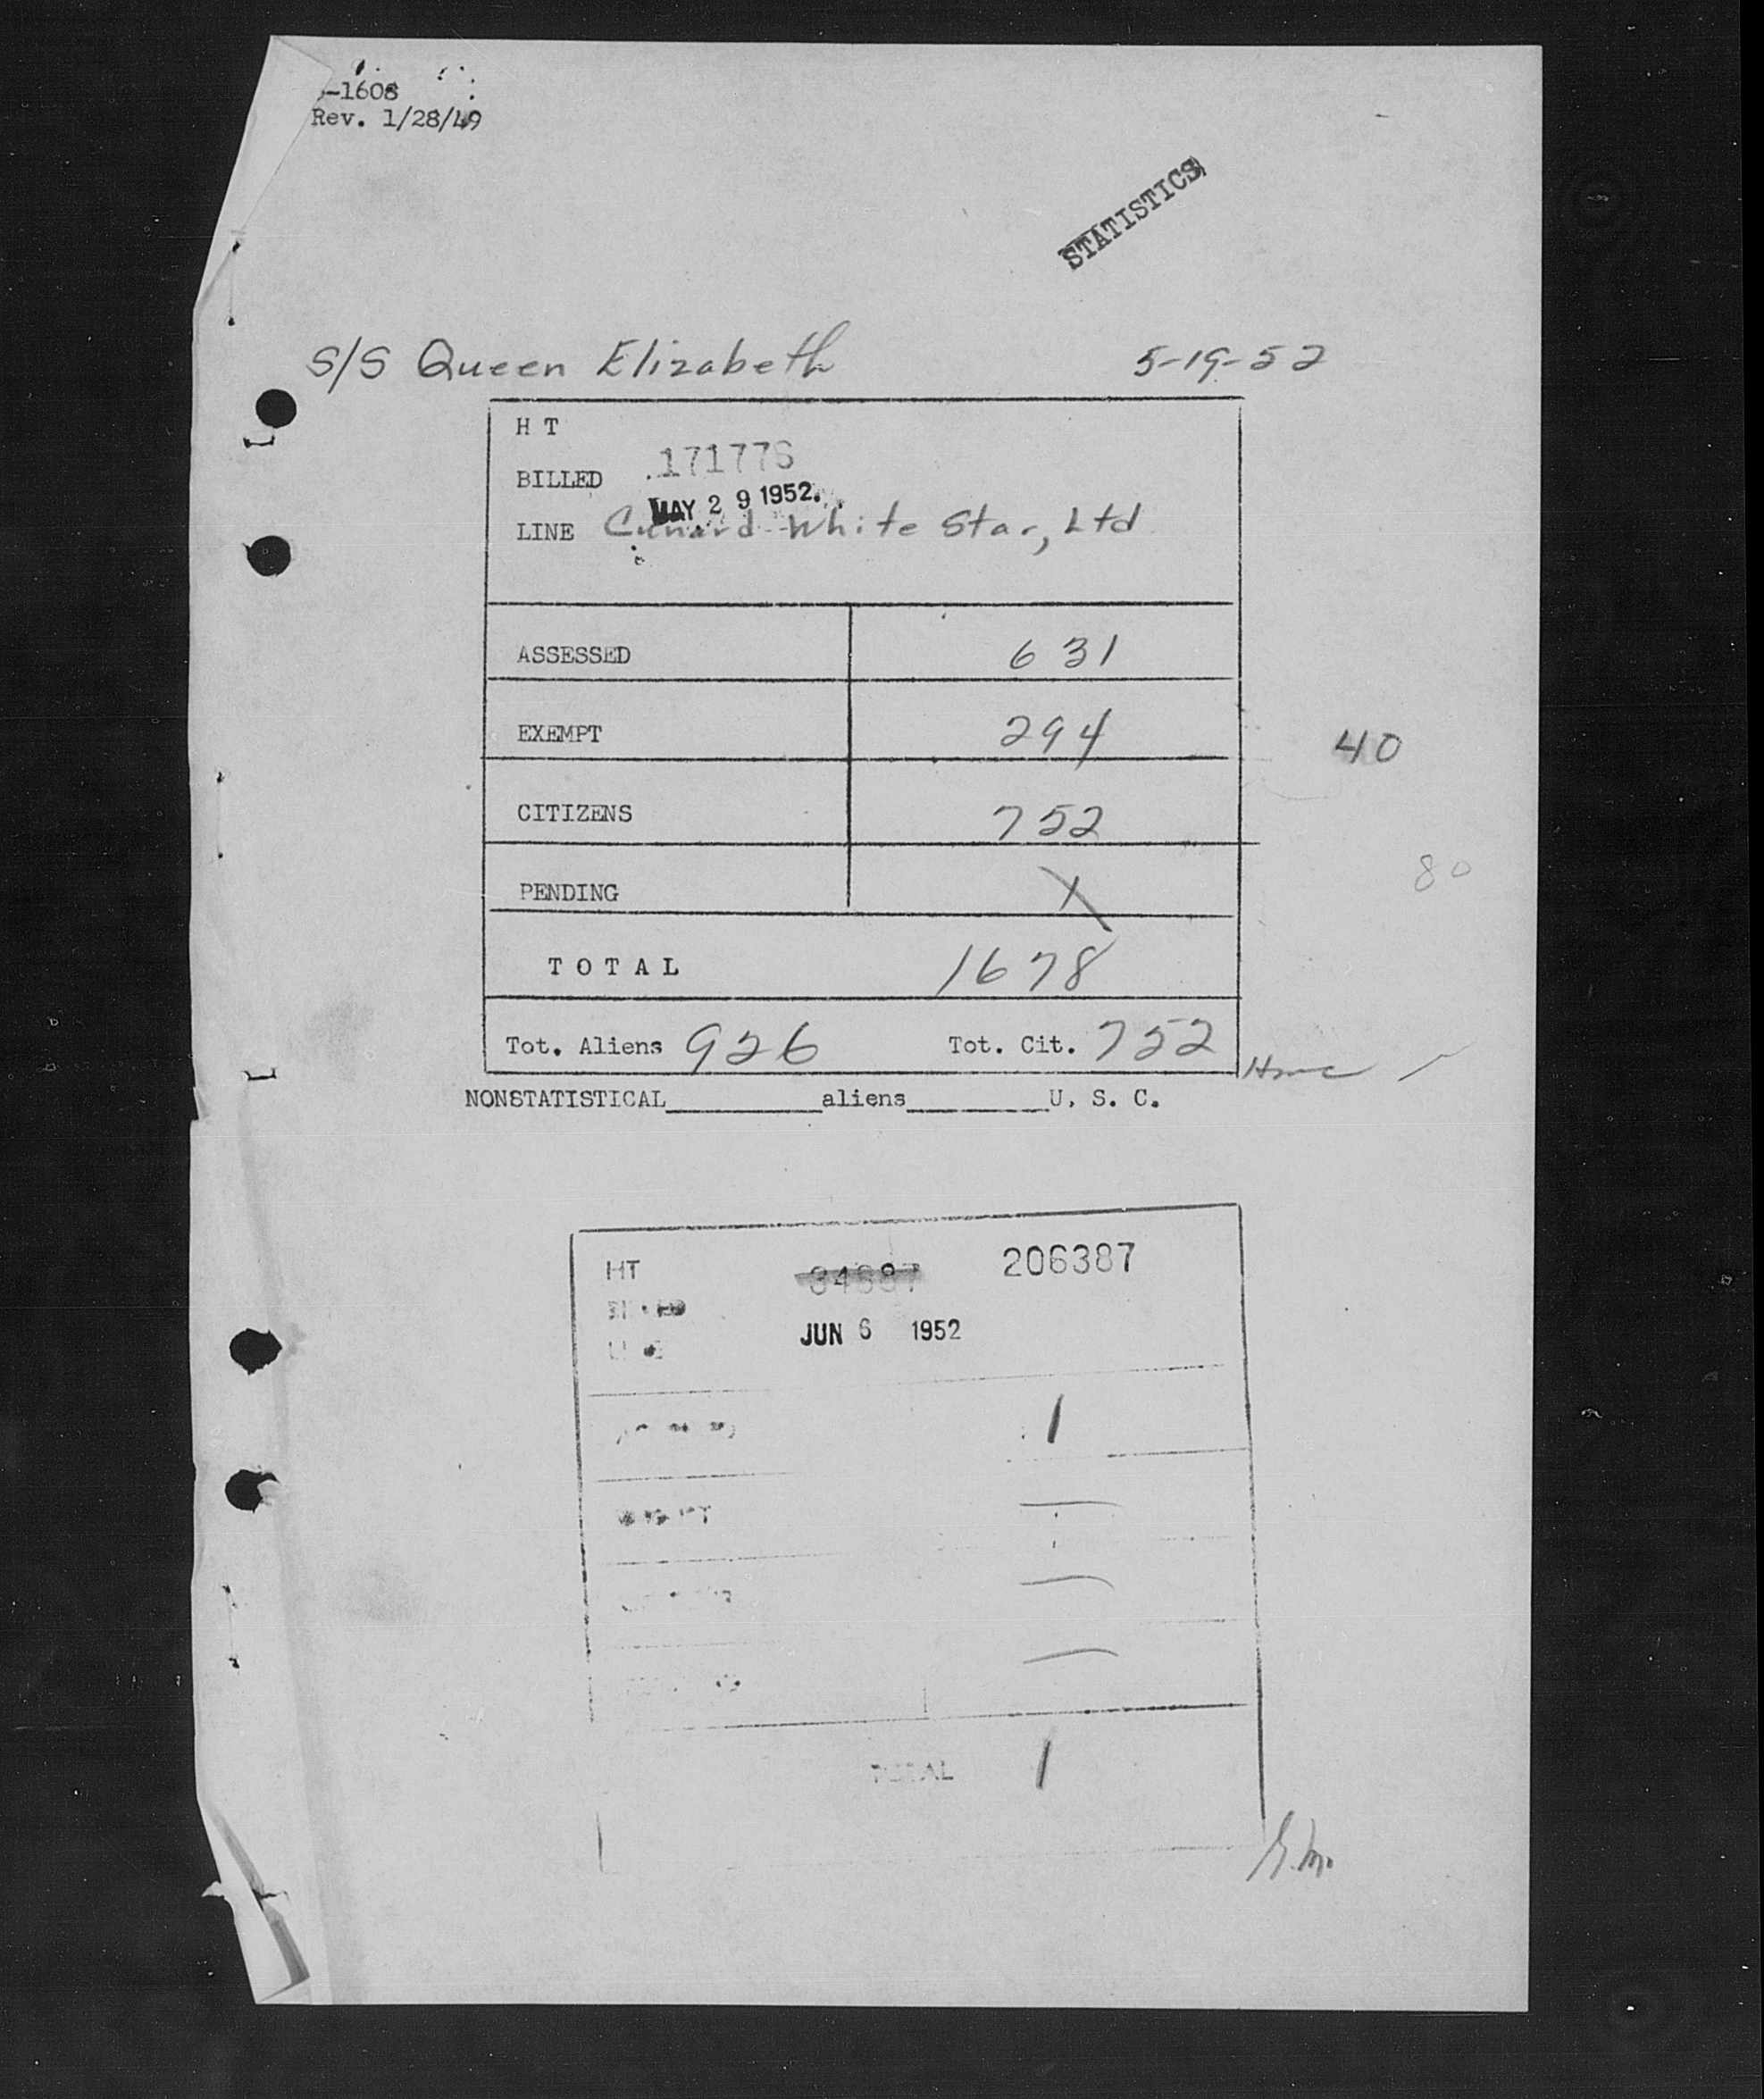 -1608
Rev. 1/28/49
STATISTICS
S/S Queen Elizabeth 5-19-52
H T
BILLED 171776
MAY 29 1952
LINE Cunard White Star, Ltd
ASSESSED 631
EXEMPT 294
40
CITIZENS 752
80
PENDING
TOTAL 1678
Tot. Aliens 926 Tot. Cit. 752
NONSTATISTICAL aliens U. S. C.
HT 206387
JUN 6 1952
1
TOTAL 1